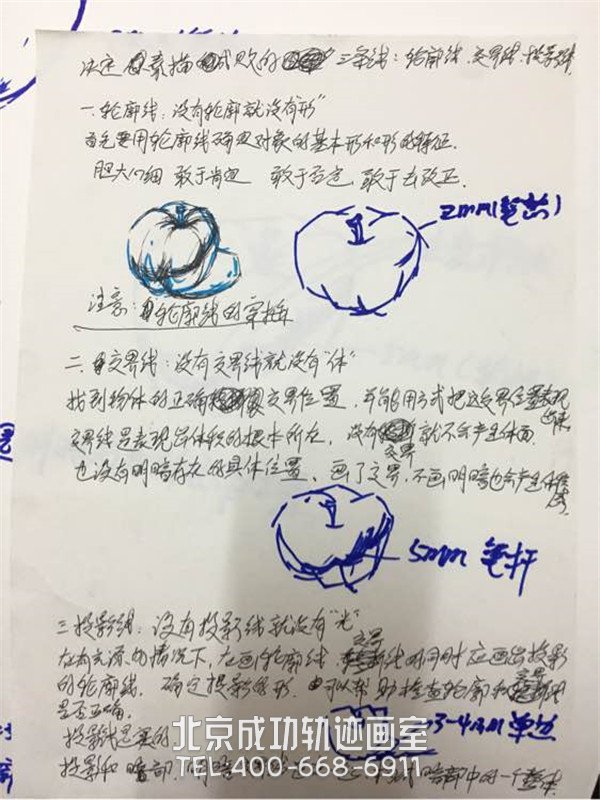 决定素描成败的三条线：轮廓线、交界线、投影线
一.轮廓线：没有轮廓就没有"形"
首先要用轮廓线确定对象的基本形和形的特征.
胆大心细 敢于肯定 敢于否定,敢于去改正.
2mm(笔
注意：轮廓线的穿插
二.交界线：没有交界线就没有"体"
找到物体的正确交界位置，并能用方式把这交界位置表现出来
交界线是表现出体积的根本所在，没有交界就不会产生体面.
也没有明暗存在的具体位置、画了交界,不画明暗也会产生体积
5mm 笔杆
三.投影线：没有投影线就没有"光"
在有光源的情况下，在画轮廓线、交界线的同时应画出投影
的轮廓线，确定投影的形，可以帮助检查轮廓和交界
是否正确.
3-4mm 单边
投影线是
北京成功轨迹画室
投影和暗部
TEL:400-668-6911
暗部中的一个整体